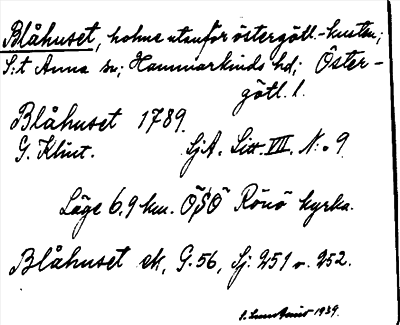 Blåhuset, holme utanför östergötl.-kusten;
S:t Anna sn; Hammarkinds hd; Öster-
götl. l.
Blåhuset 1789.
G. Klint. SjA. Litt. VII. N:o 9
Läge 6,9 km. ÖSÖ Rönö kyrka.
Blåhuset ek, G. 56, Sj. 251 o. 252.
1939.